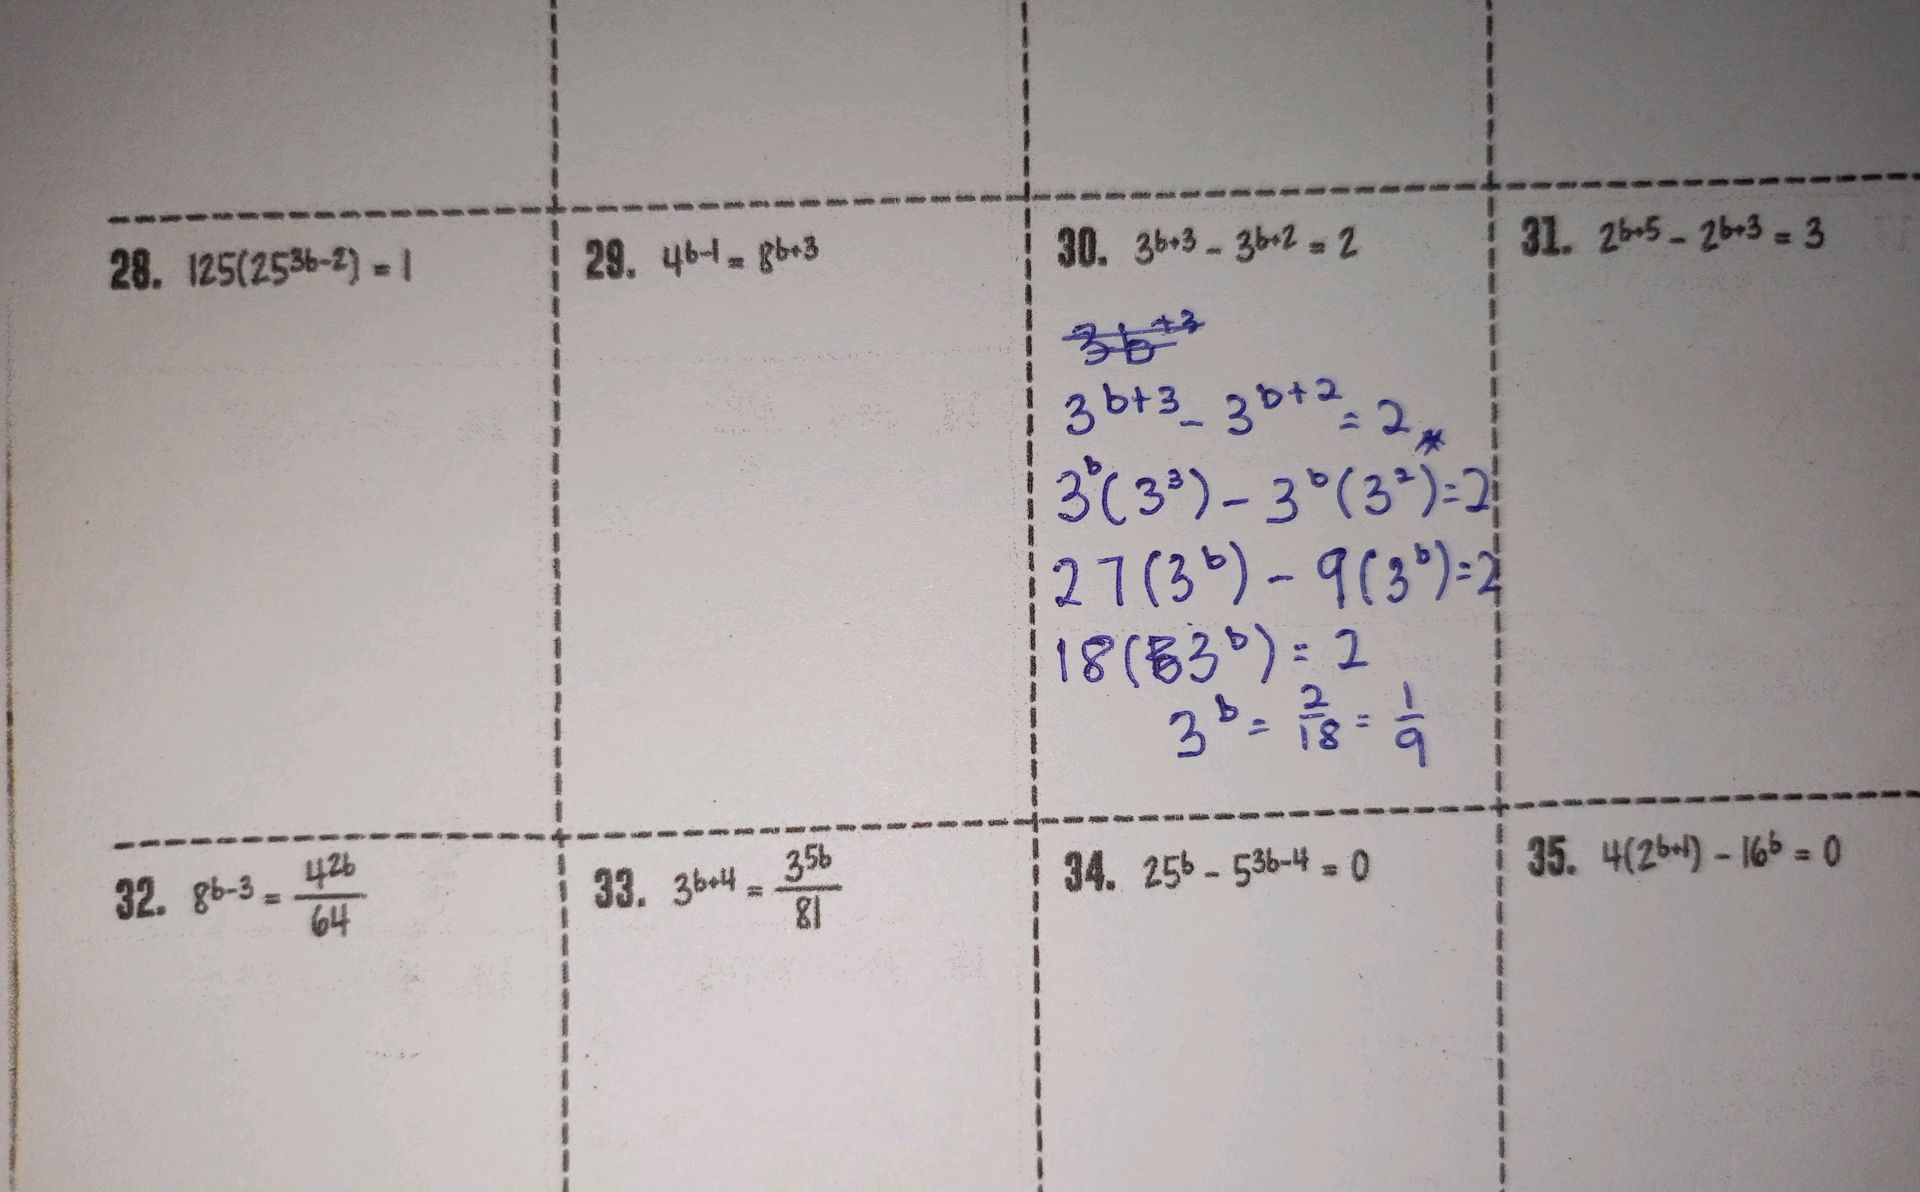 28. 125(25³ᵇ⁻²) = 1
29. 4ᵇ⁻¹ = 8ᵇ⁺³
30. 3ᵇ⁺³ - 3ᵇ⁺² = 2
3ᵇ⁺³ - 3ᵇ⁺² = 2
3ᵇ(3³) - 3ᵇ(3²) = 2
27(3ᵇ) - 9(3ᵇ) = 2
18(3ᵇ) = 2
3ᵇ = 2/18 = 1/9
31. 2ᵇ⁺⁵ - 2ᵇ⁺³ = 3
32. 8ᵇ⁻³ = 4²ᵇ/64
33. 3ᵇ⁺⁴ = 3⁵ᵇ/81
34. 25ᵇ - 5³ᵇ⁻⁴ = 0
35. 4(2ᵇ⁺¹) - 16ᵇ = 0